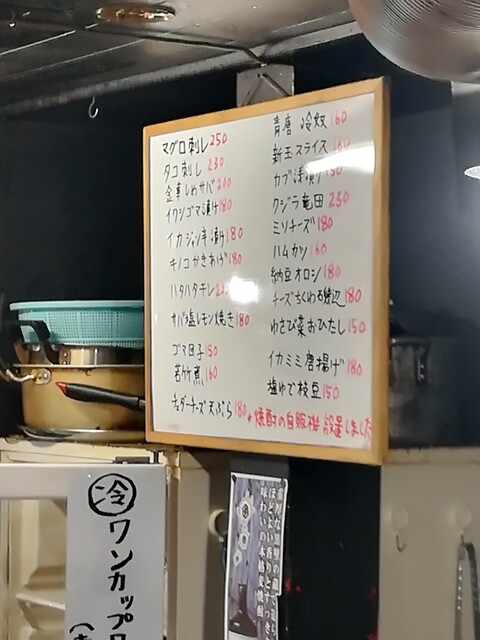 マグロ刺し250
タコ刺し230
金華しめサバ200
イワシゴマ漬け180
イカジャン辛漬け180
キノコかきあげ180
ハタハタテレ
サバ塩レモン焼き180
ゴマ団子150
若竹煮160
チェダーチーズ天ぷら180
青唐冷奴160
新玉スライス
カブ浅漬け150
クジラ竜田250
ミソチーズ180
ハムカツ160
納豆オロシ180
チーズちくわ石磯辺180
わさび菜おひたし150
イカミミ唐揚げ180
塩ゆで枝豆150
焼酎の自販機設置しました
冷
ワンカップ
ほどよい香りとすっき
味わいの本格麦焼酎